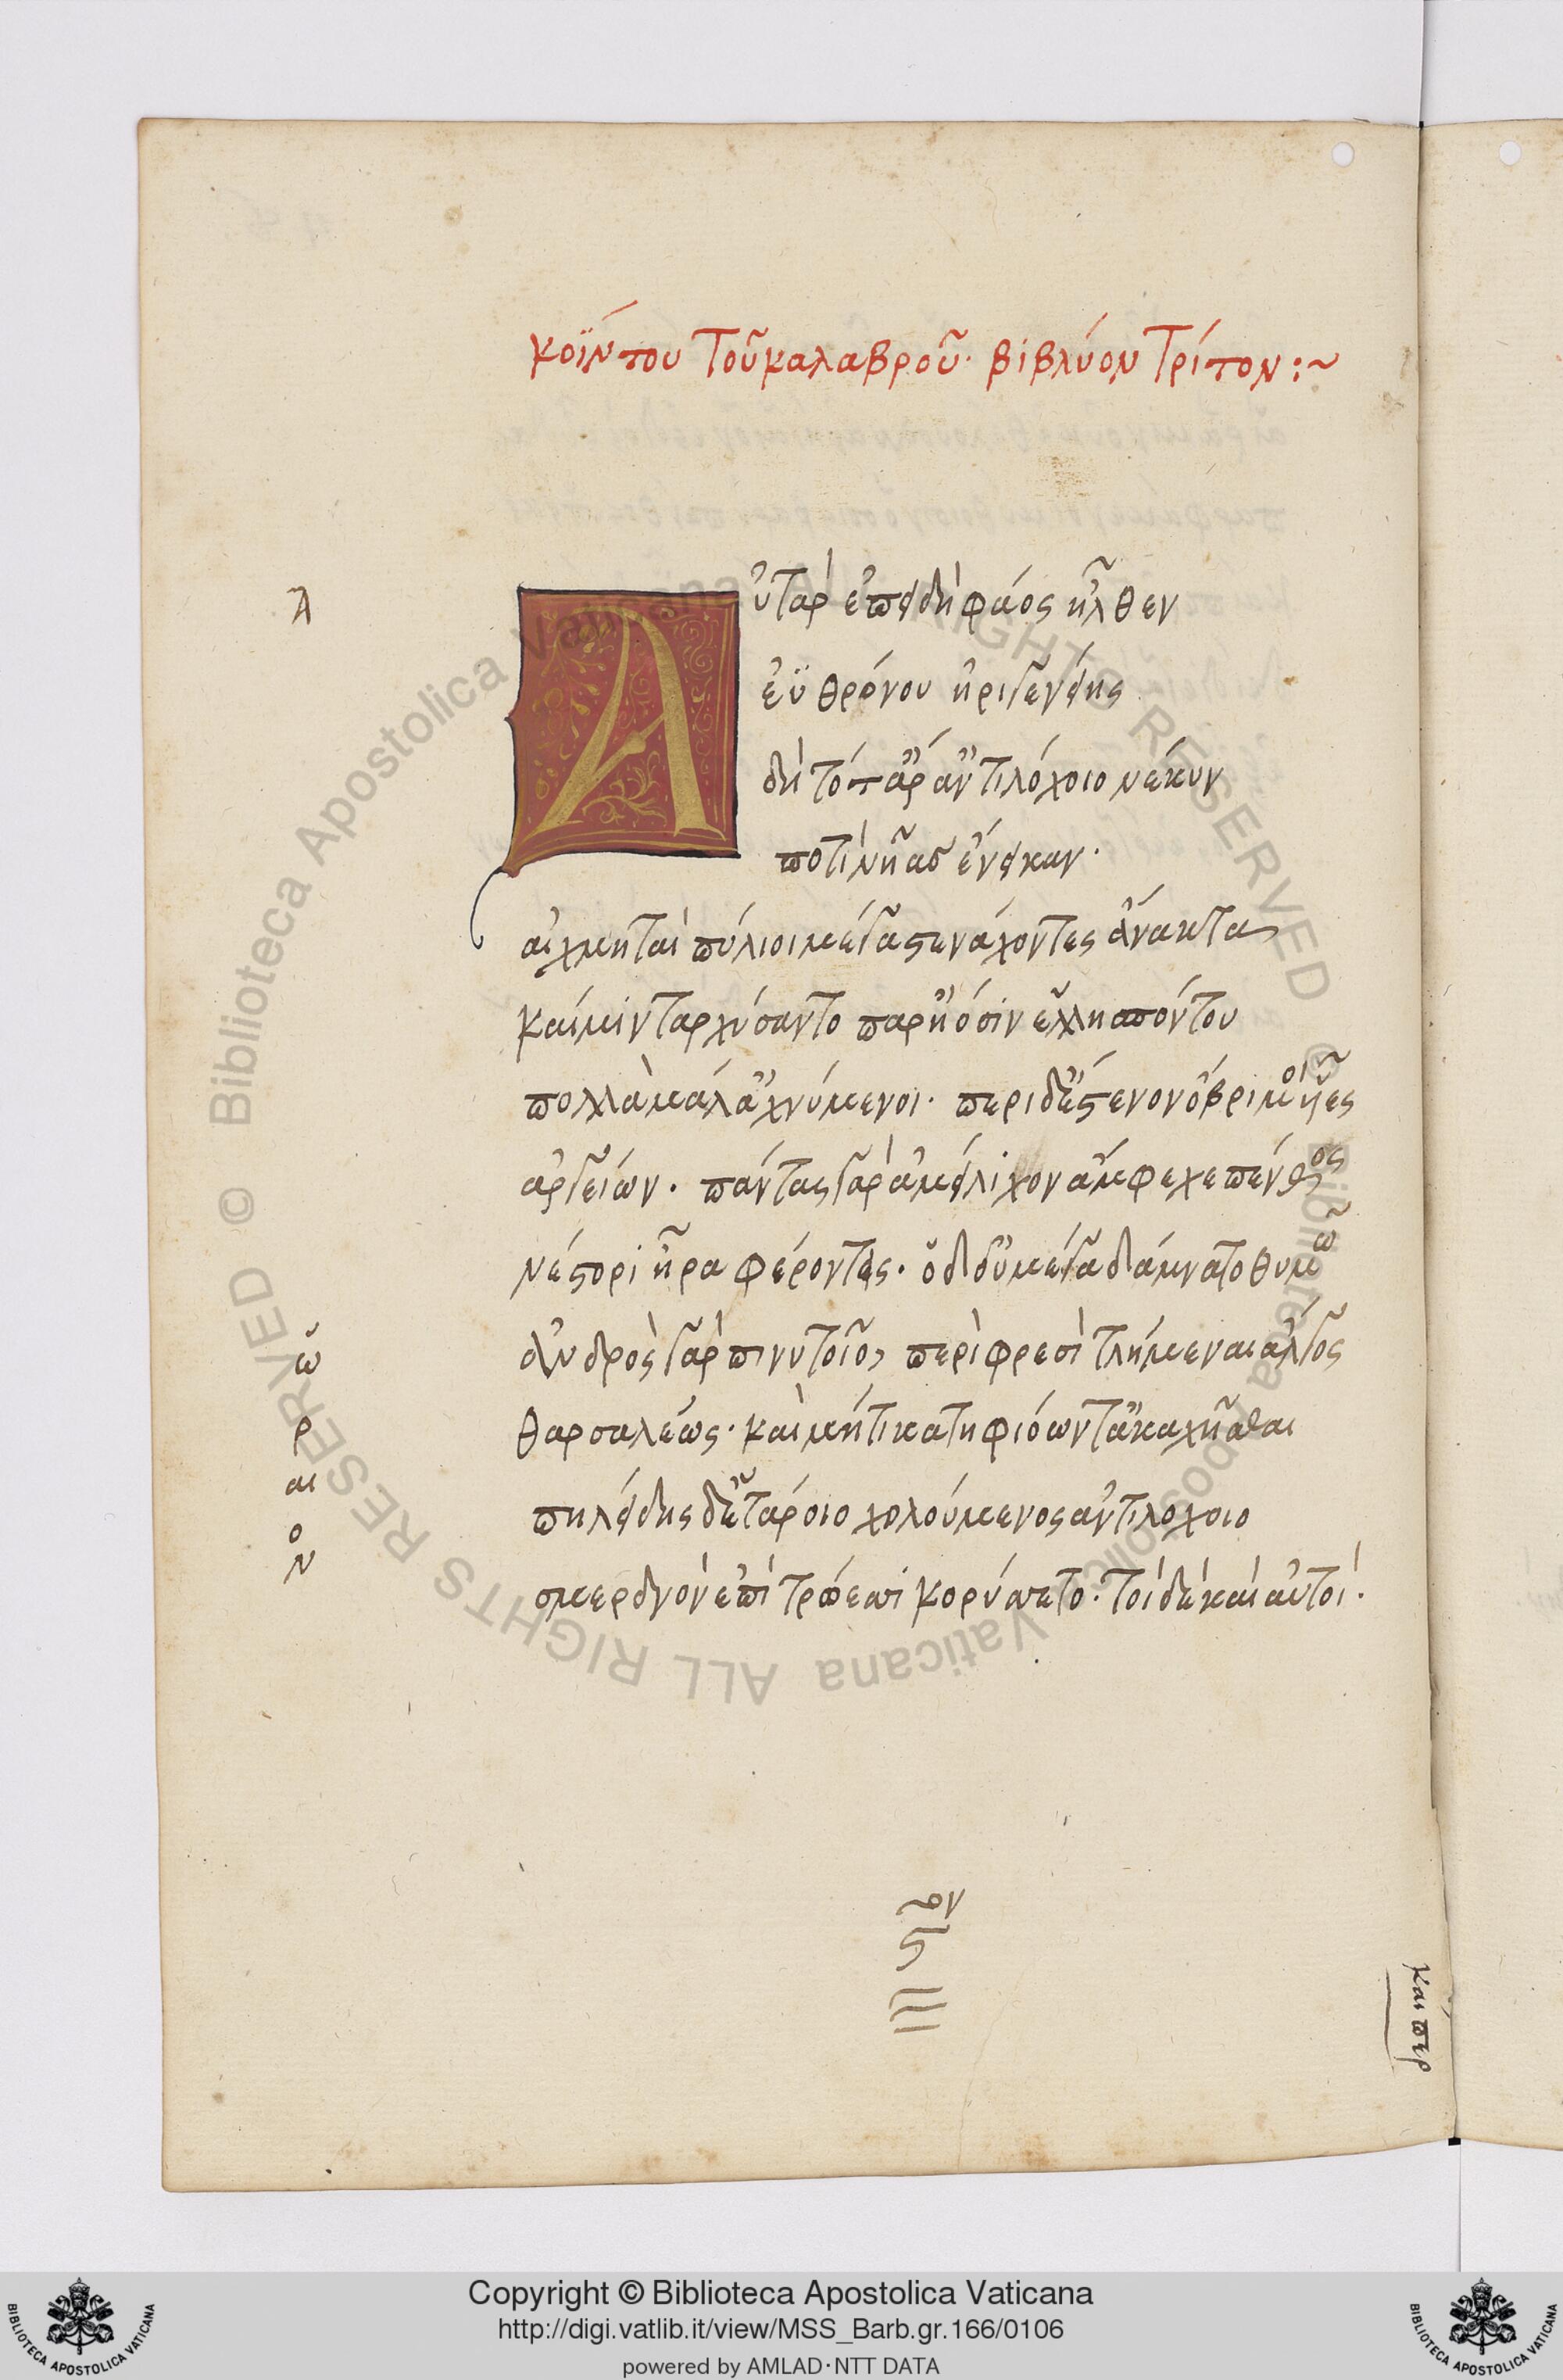 κοΐντου τοῦ καλαβροῦ· βιβλύον τρίτον:~
Α
Αὐτὰρ ἐπεὶ δὴ φάος ἦλθεν
ἐϋθρόνου ἠριγενείης
δὴ τότ' ἄρ' ἀντιλόχοιο νέκυν
ποτὶ νῆας ἔνεικαν·
αἰχμηταὶ πύλιοι μέγα στενάχοντες ἄνακτα
καί μιν ταρχύσαντο παρ' ἠιόσιν ἑλλησπόντου
πολλὰ μάλ' ἀχνύμενοι· περὶ δ' ἔστενον ὄβριμοι υἷες
ἀργείων· πάντας γὰρ ἀμείλιχον ἄμφεχε πένθος
νέστορι ἦρα φέροντες· ὁ δ' οὐ μέγα δάμνατο θυμῷ
ἀνδρὸς γὰρ πινυτοῖο, περὶ φρεσὶ τλήμεναι ἄλγος
θαρσαλέως· καὶ μή τι κατηφιόωντ' ἀκαχῆσθαι
πηλείδης δ' ἑτάροιο χολούμενος ἀντιλόχοιο
σμερδνὸν ἐπὶ τρώεσσι κορύσσετο· τοὶ δὲ καὶ αὐτοί·
ὡ
ρ
αι
ο
ν
καί περ
Biblioteca Apostolica Vaticana ALL RIGHTS RESERVED ©
Biblioteca Apostolica Vaticana ALL RIGHTS RESERVED ©
Copyright © Biblioteca Apostolica Vaticana
http://digi.vatlib.it/view/MSS_Barb.gr.166/0106
powered by AMLAD·NTT DATA
BIBLIOTECA APOSTOLICA VATICANA
BIBLIOTECA APOSTOLICA VATICANA